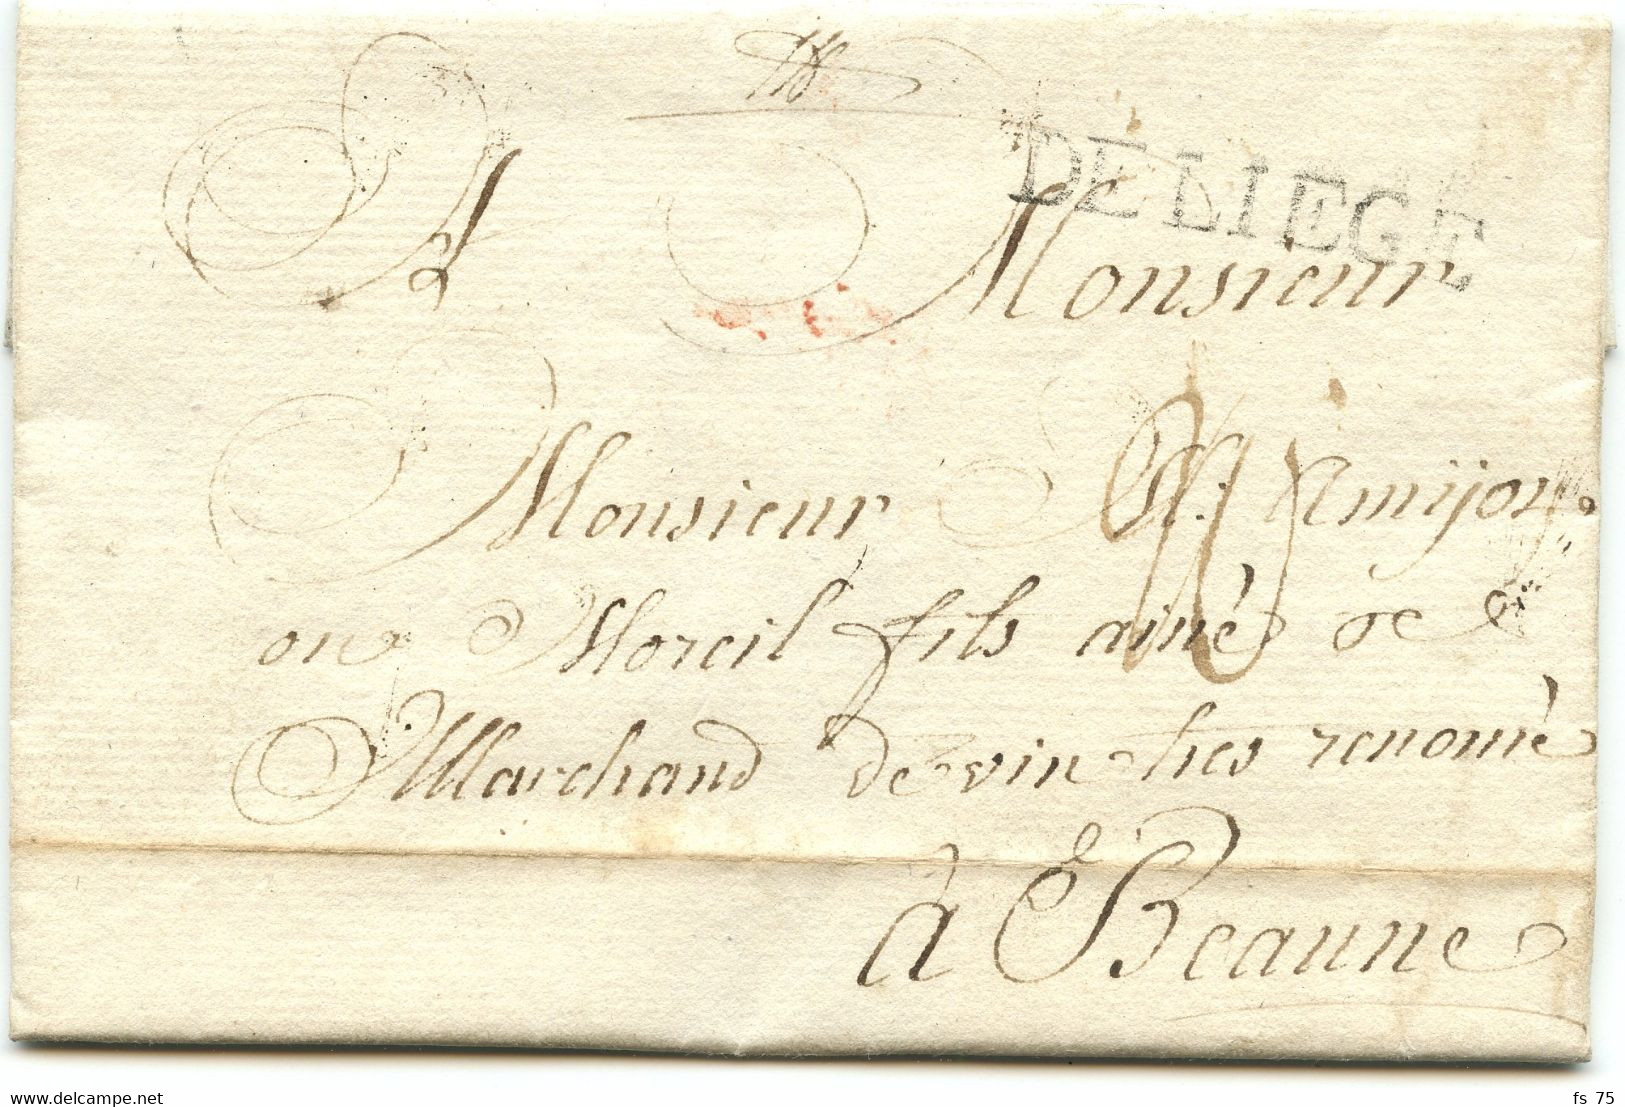 DE LIEGE
A Monsieur
Monsieur
Moreil fils ainè de
Marchand de vin tres renomè
à Beaune
www.delcampe.com
fs 75